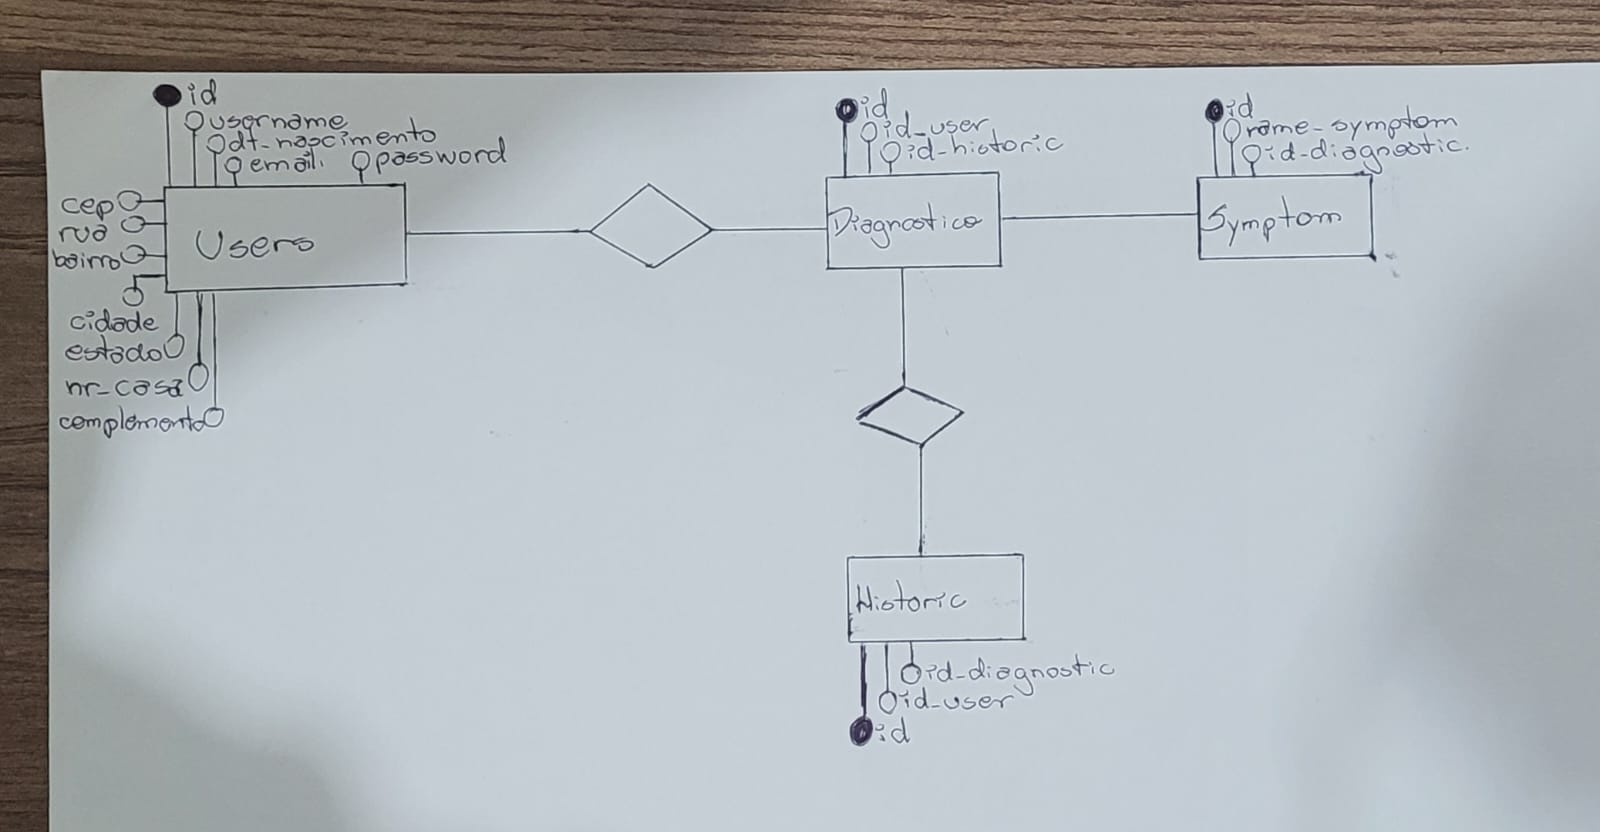 id
username
dt-nascimento
email
password
cep
rua
bairro
Users
cidade
estado
nr-casa
complemento
id
id-user
id-historic
Diagnostico
id
name-symptom
id-diagnostic.
Symptom
Historic
id-diagnostic
id-user
id